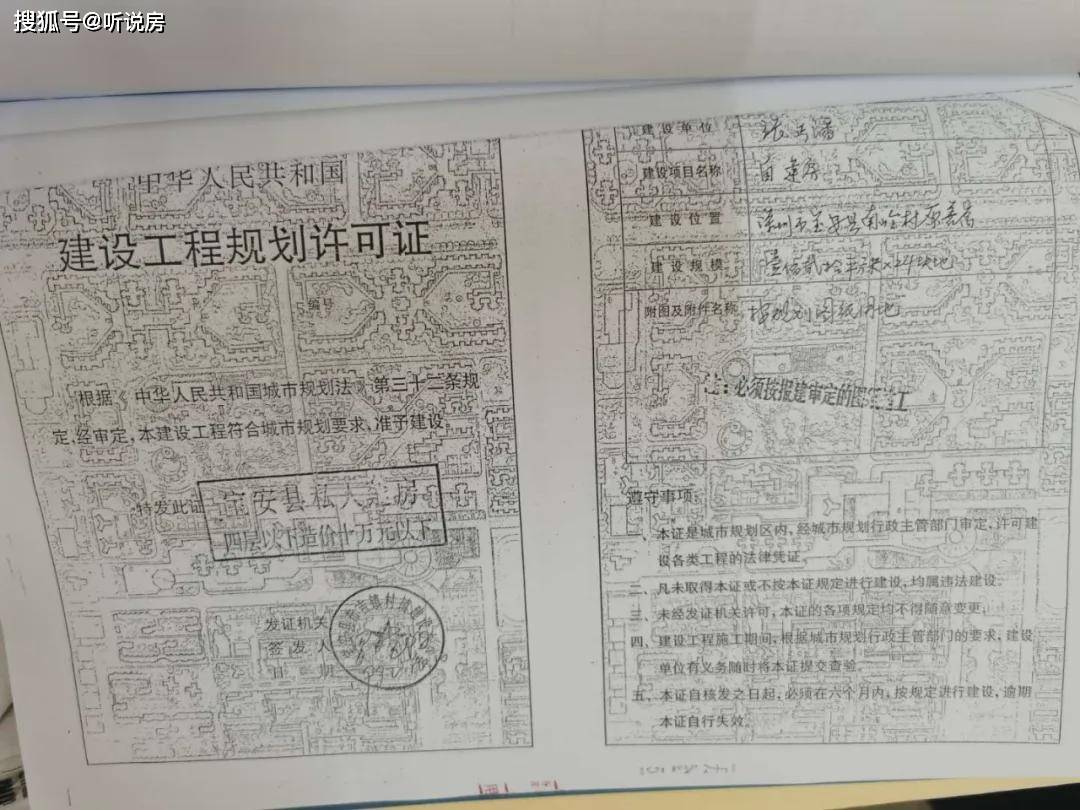 搜狐号@听说房
中华人民共和国
建设工程规划许可证
编号
根据《中华人民共和国城市规划法》第三十二条规
定,经审定,本建设工程符合城市规划要求,准予建设。
特发此证
宝安县私人 房
四层以下造价十万元以下
发证机关
签发人
日期
建设单位
建设项目名称
建设位置 深圳市宝安县南岭村
建设规模
附图及附件名称 按规划图纸用地
注:必须按报建审定的图 工
遵守事项:
一、本证是城市规划区内,经城市规划行政主管部门审定,许可建
设各类工程的法律凭证。
二、凡未取得本证或不按本证规定进行建设,均属违法建设。
三、未经发证机关许可,本证的各项规定均不得随意变更。
四、建设工程施工期间,根据城市规划行政主管部门的要求,建设
单位有义务随时将本证提交查验。
五、本证自核发之日起,必须在六个月内,按规定进行建设,逾期
本证自行失效。